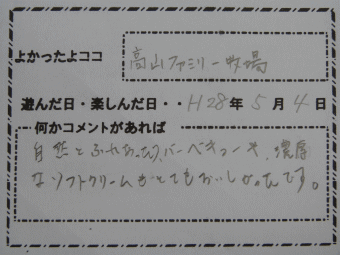 よかったよココ
高山ファミリー牧場
遊んだ日・楽しんだ日・・H28年5月4日
何かコメントがあれば
自然とふれあったり、バーベキューや、濃厚
なソフトクリームがとてもおいしかったんです。